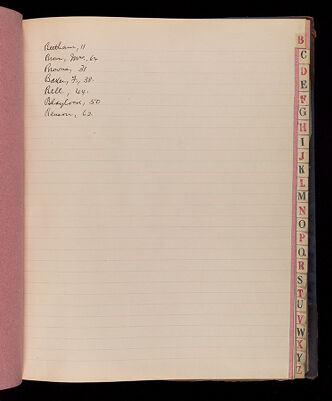 Beetham, 11
Bren, Mrs, 62
Browne, 31
Baker, F., 38.
Bell, 44.
Blaylock, 50
Benson, 62
B
C
D
E
F
G
H
I
J
K
L
M
N
O
P
Q
R
S
T
U
V
W
X
Y
Z